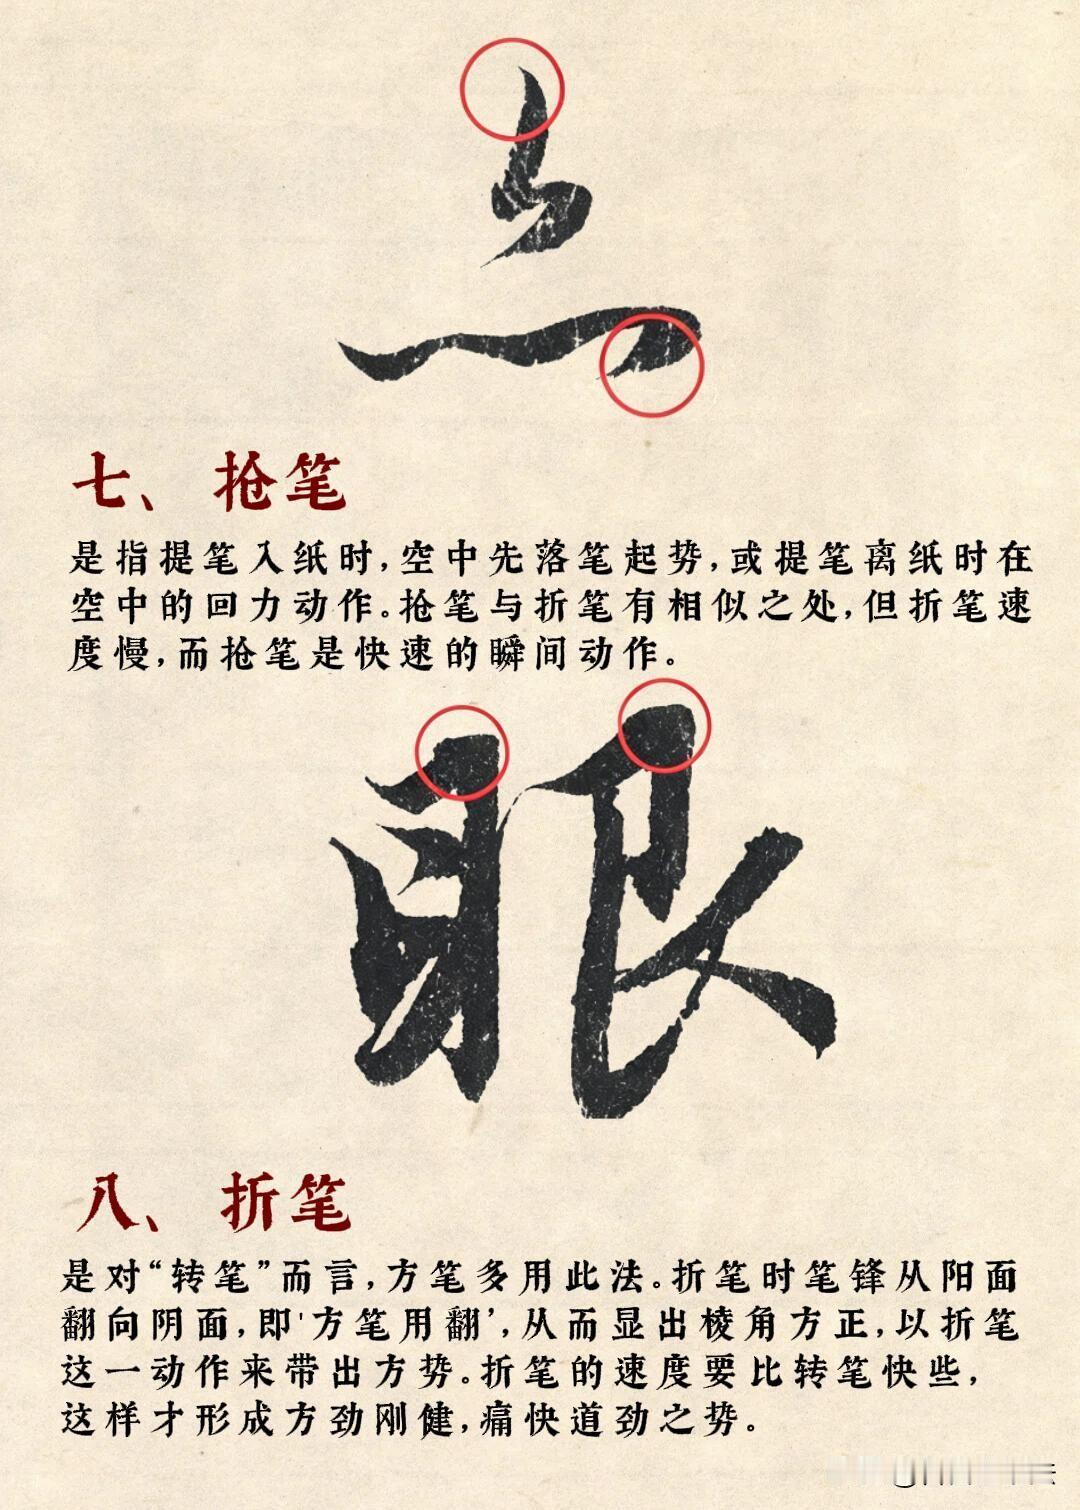 七、抢笔
是指提笔入纸时,空中先落笔起势,或提笔离纸时在
空中的回力动作。抢笔与折笔有相似之处,但折笔速
度慢,而抢笔是快速的瞬间动作。
眼
八、折笔
是对“转笔”而言,方笔多用此法。折笔时笔锋从阳面
翻向阴面,即'方笔用翻',从而显出棱角方正,以折笔
这一动作来带出方势。折笔的速度要比转笔快些,
这样才形成方劲刚健,痛快道劲之势。